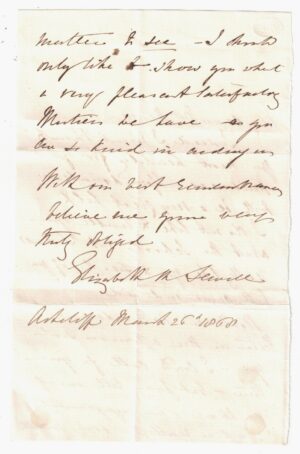 matter to see - I should
only like to show you what
a very pleasant satisfactory
Mistress we have as you
are so kind in aiding us
With our best remembrances
believe me yours very
truly obliged
Elizabeth M Sewell
Ashcliff March 26th 1868